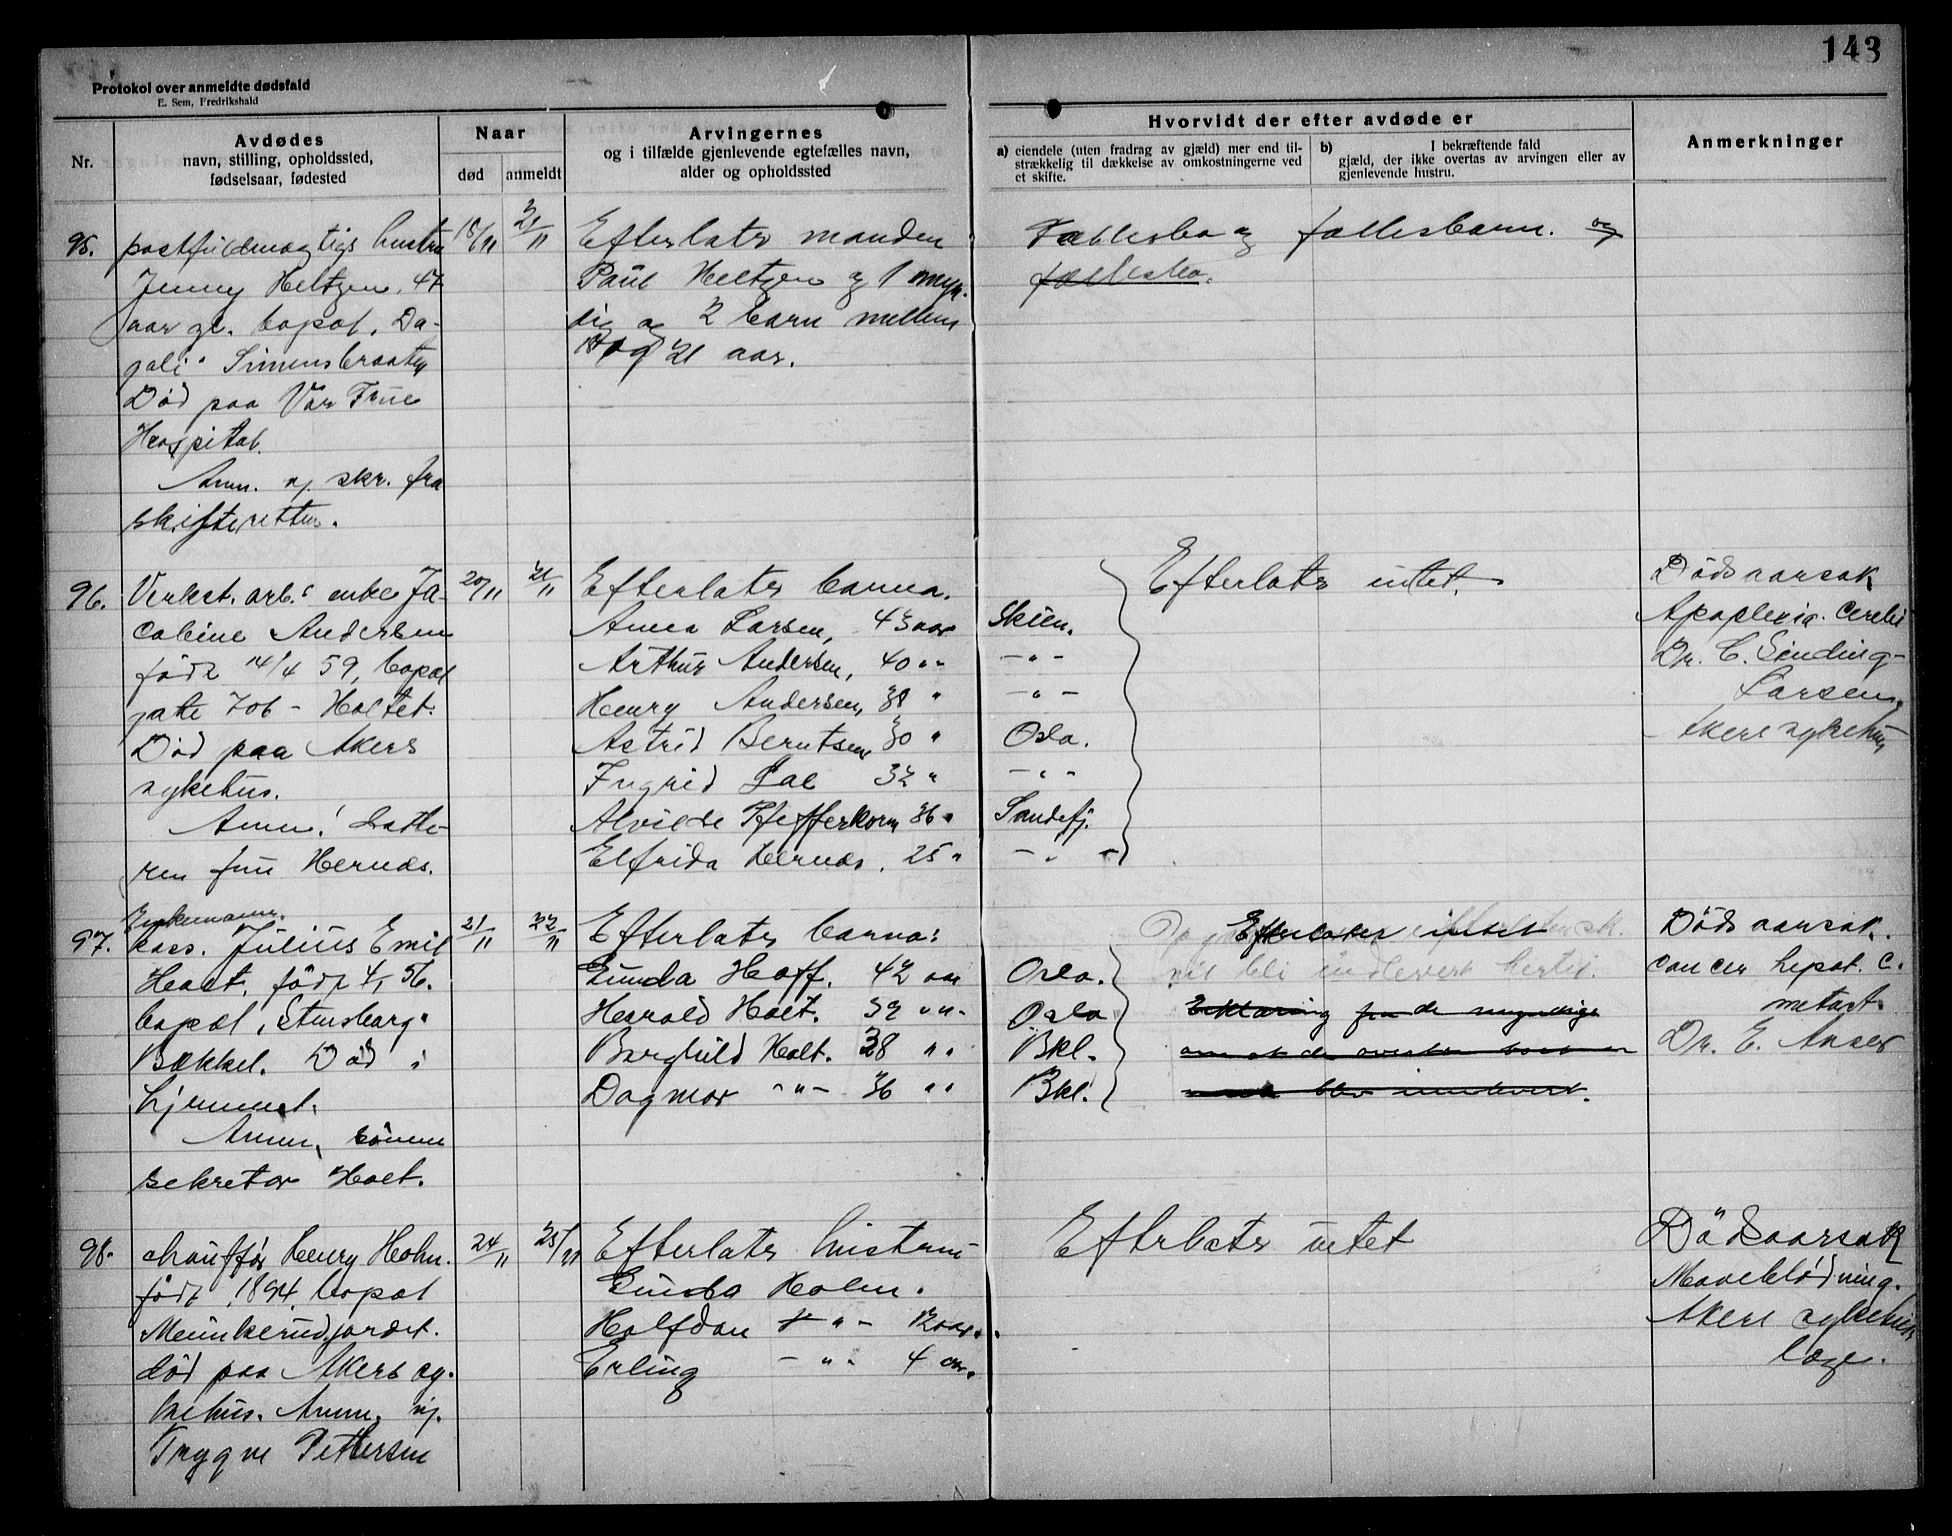 143
Protokol over anmeldte dødsfald
E. Sem, Fredrikshald
Nr.
Avdødes
navn, stilling, opholdssted,
fødselsaar, fødested
Naar
død
anmeldt
Arvingernes
og i tilfælde gjenlevende egtefælles navn,
alder og opholdssted
Hvorvidt der efter avdøde er
a) eiendele (uten fradrag av gjæld) mer end til-
strækkelig til dækkelse av omkostningerne ved
et skifte.
b) I bekræftende fald
gjæld, der ikke overtas av arvingen eller av
gjenlevende hustru.
Anmerkninger
95. postfuldmægtigs hustru 18/11 21/11 Efterlater manden Fællesbo og fællesbarn. og
Jenny Heltzen, 47 Paul Heltzen og 1 myn- fællesbo.
aar gl. bopæl, Da- dig og 2 barn mellem
gali Simensbraaten 18 og 21 aar.
Død paa Vor Frue
Hospital.
Anm. ved skr. fra
skifteretten.
96. Verkst. arb.s enke Ja- 20/11 21/11 Efterlater barna. Efterlater intet. Dødsaarsak
cobine Andersen Anna Larsen, 43 aar Skien. Apoplexia. cerebri
født 14/4 59, bopæl Arthur Andersen, 40 " - " - Dr. C. Sinding-
gate 706 - Holtet. Henry Andersen, 38 " - " - Larsen,
Død paa Akers Astrid Berntsen 30 " Oslo. Akers sykehus
sykehus. Ingrid Lae 32 " - " -
Anm! datte- Alvilde Pfefferkorn 36 " Sandefj.
ren fru Hernæs. Elfrida Hernæs. 25 " - " -
Enkemann.
97. kass. Julius Emil 21/11 22/11 Efterlater barna: Efterlater intet Dødsaarsak.
Holt, født 4/1 56. Gunda Hoff. 42 aar Oslo. vil bli indlevert hertil. Cancer hepat. c.
bopæl, Stensborg Harald Holt. 39 " " Oslo Erklæring fra de myndige metast.
Bækkel. Død i Borghild Holt. 38 " " Bkl. Dr. E. Anker
Ljennest. Dagmar - " - 36 " " Bkl.
Anm, sønnen
sekretær Holt.
98. chauffør Henry Holm. 24/11 25/11 Efterlater hustru Efterlater intet Dødsaarsak
født 1894, bopæl Gunda Holm. Maveblødning.
Munkerudjordet. Halfdan - " - 12 aar. Akers sykehus
død paa Akers sy- Erling - " - 4 aar. læge.
kehus. Anm. ved
Trygve Pettersen